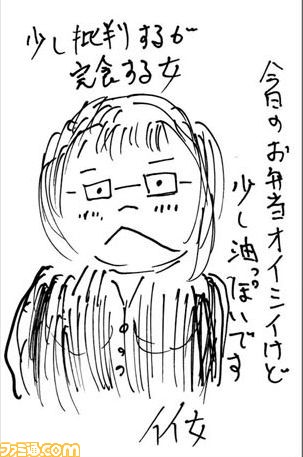 少し批判するが
完食する女
今日のお弁当オイシイけど
少し油っぽいです
イイ女
ファミ通.com